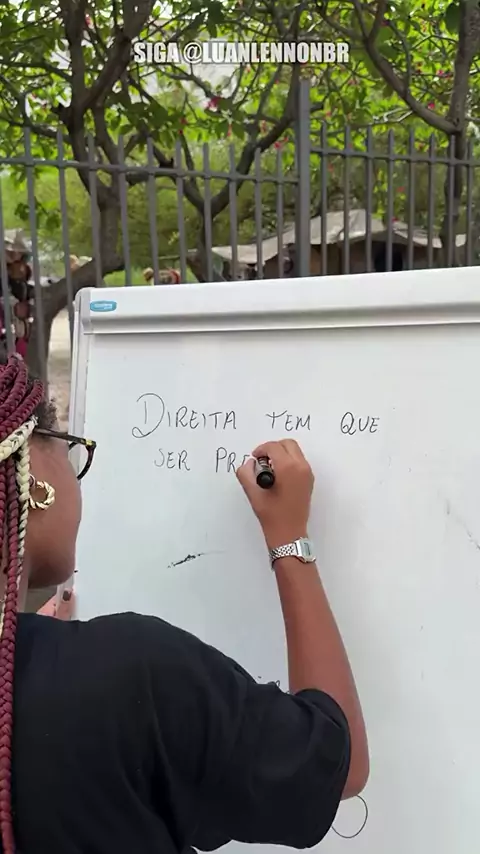 SIGA @LUANLENNONBR
DIREITA TEM QUE
SER PRE